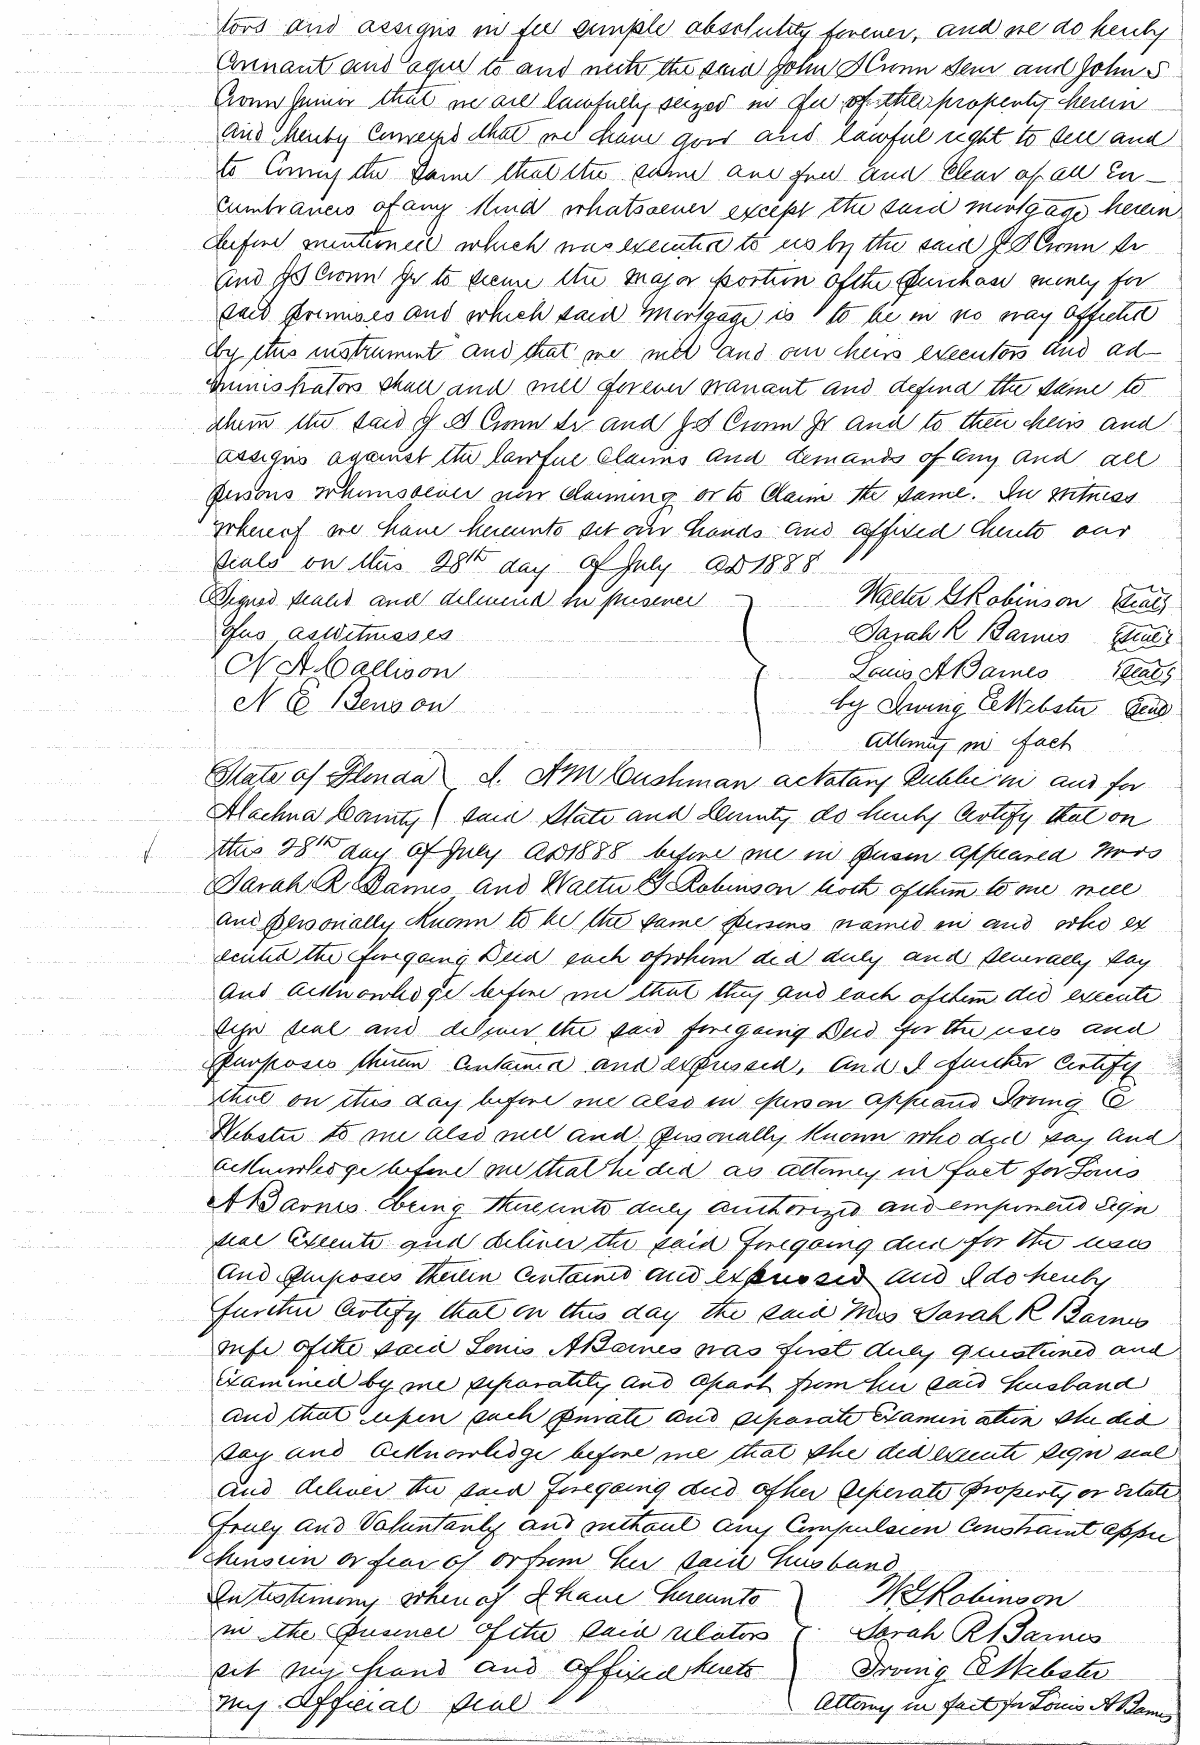 tors and assigns in fee simple absolutely forever, and we do hereby
Covenant and agree to and with the said John S Cronn Senr and John S
Cronn Junior that we are lawfully seized in fee of the property herein
and hereby Conveyed that we have good and lawful right to sell and
to Convey the same that the same are free and Clear of all En-
cumbrances of any Kind whatsoever except the said mortgage herein
before mentioned which was executed to us by the said J S Cronn Sr
and J S Cronn Jr to secure the major portion of the purchase money for
said premises and which said Mortgage is to be in no way affected
by this instrument and that we will and our heirs executors and ad-
ministrators shall and will forever warrant and defend the same to
them the said J S Cronn Sr and J S Cronn Jr and to their heirs and
assigns against the lawful Claims and demands of any and all
persons whomsoever now claiming or to Claim the same. In witness
whereof we have hereunto set our hands and affixed hereto our
seals on this 28th day of July AD 1888
Signed sealed and delivered in presence
of us as Witnesses
N A Callison
N E Benson
Walter G Robinson (Seal)
Sarah R Barnes (Seal)
Louis A Barnes (Seal)
by Irving E Webster Seal
Attorney in fact
State of Florida } I. A M Cushman a Notary Public in and for
Alachua County } said State and County do hereby Certify that on
this 28th day of July AD 1888 before me in person appeared Mrs
Sarah R Barnes and Walter G Robinson both of them to me well
and personally Known to be the same persons named in and who ex
ecuted the foregoing Deed each of whom did duly and severally say
and acknowledge before me that they and each of them did execute
sign seal and deliver the said foregoing Deed for the uses and
purposes therein contained and expressed, and I further Certify
that on this day before me also in person appeard Irving E
Webster to me also well and personally Known who did say and
acknowledge before me that he did as attorney in fact for Louis
A Barnes being thereunto duly authorized and empowered Sign
seal Execute and deliver the said foregoing deed for the uses
and purposes therein Contained and expressed and I do hereby
further Certify that on this day the said Mrs Sarah R Barnes
wife of the said Louis A Barnes was first duly questioned and
Examined by me separately and apart from her said husband
and that upon such private and separate Examination she did
say and acknowledge before me that she did execute sign seal
and deliver the said foregoing deed of her seperate property or estate
freely and Voluntarily and without any Compulsion Constraint appre
hension or fear of or from her said husband
In testimony whereof I have hereunto
in the presence of the said relators
set my hand and affixed hereto
my Official seal
W G Robinson
Sarah R Barnes
Irving E Webster
Attorney in fact for Louis A Barnes